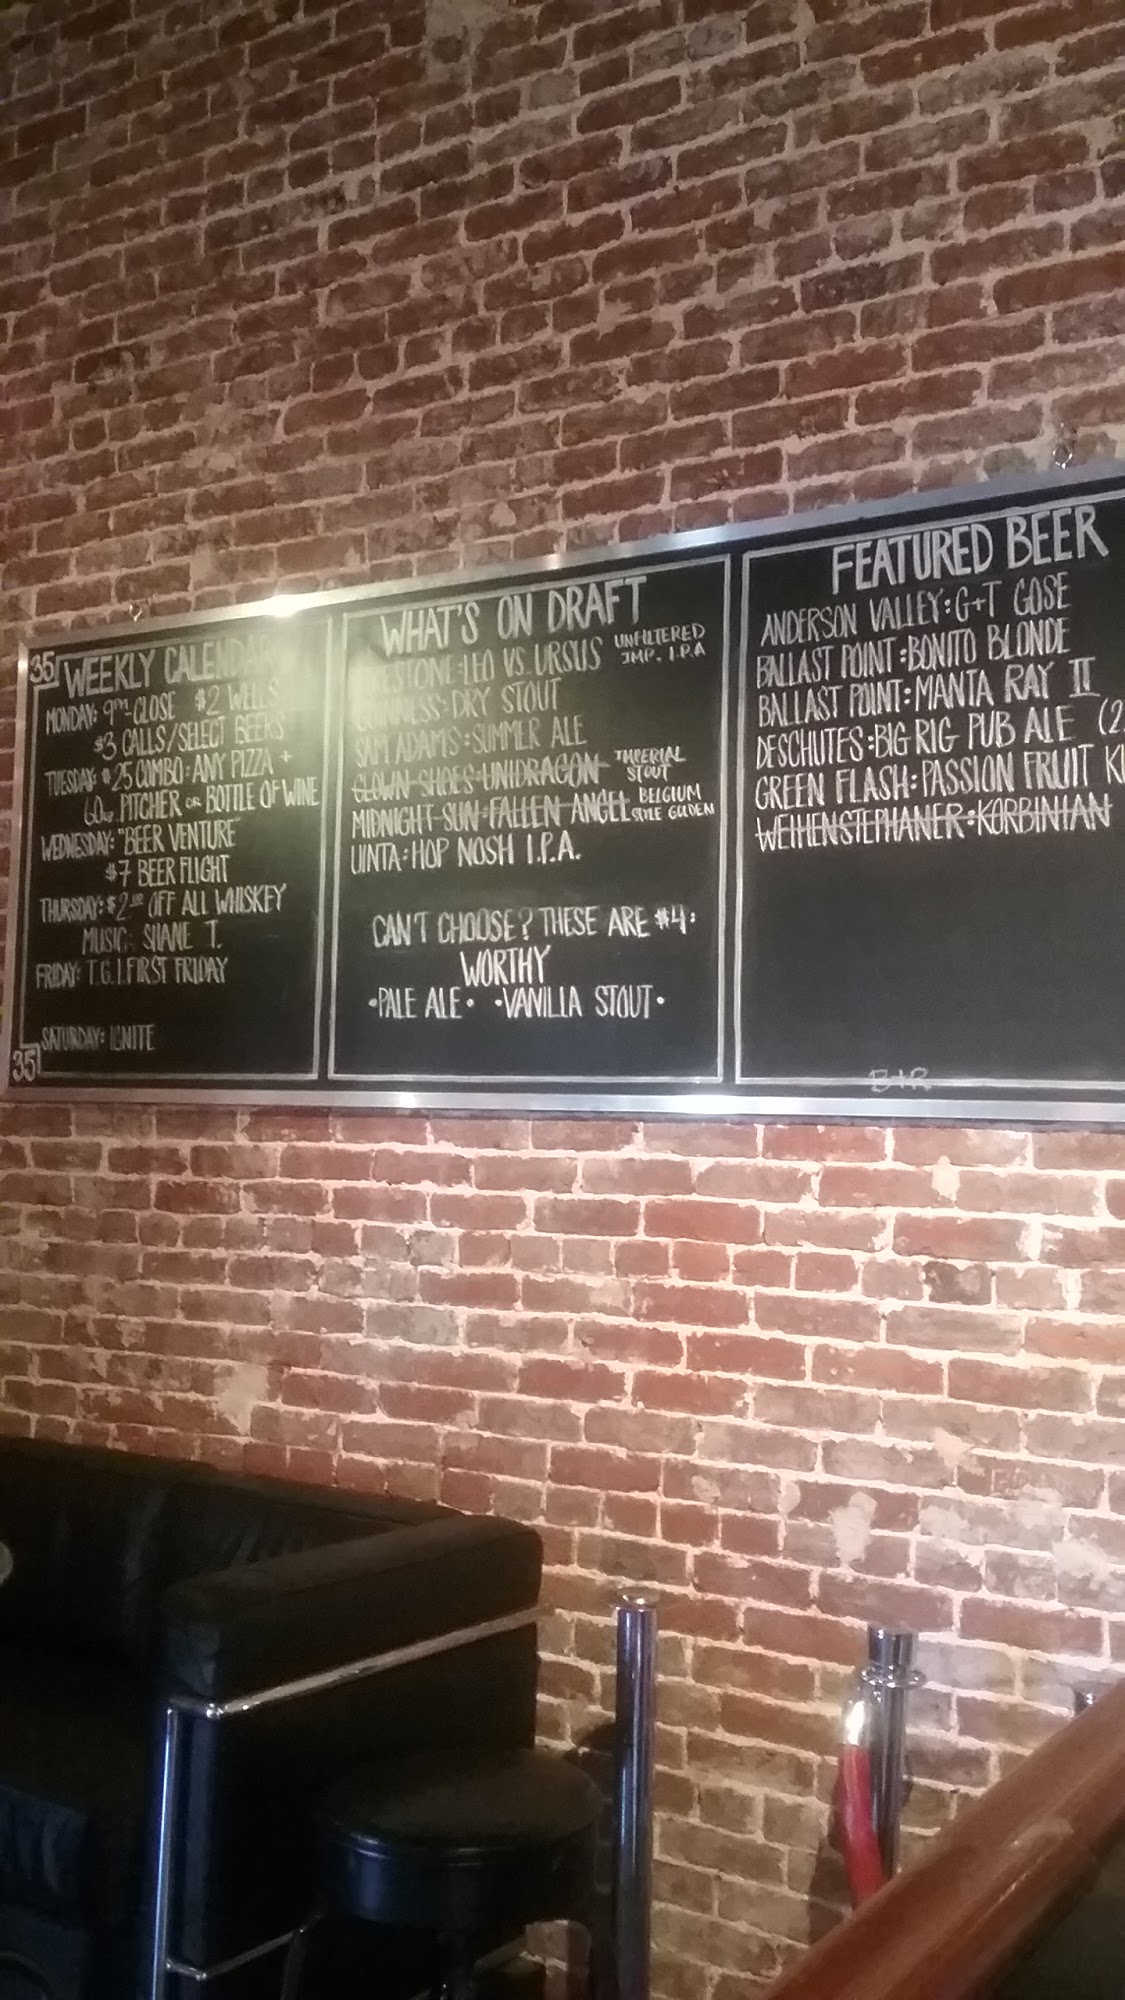 35
WEEKLY CALENDAR
MONDAY: 9PM-CLOSE $2 WELLS
$3 CALLS/SELECT BEERS
TUESDAY: $25 COMBO: ANY PIZZA +
60oz. PITCHER OR BOTTLE OF WINE
WEDNESDAY: "BEER VENTURE"
$7 BEER FLIGHT
THURSDAY: $2.00 OFF ALL WHISKEY
MUSIC: SHANE T.
FRIDAY: T.G.I. FIRST FRIDAY
SATURDAY: IGNITE
35
WHAT'S ON DRAFT
LEO VS. URSUS UNFILTERED IMP. I.P.A
GUINNESS: DRY STOUT
SAM ADAMS: SUMMER ALE
CLOWN SHOES: UNIDRAGON IMPERIAL STOUT
MIDNIGHT SUN: FALLEN ANGEL BELGIUM STYLE GOLDEN
UINTA: HOP NOSH I.P.A.
CAN'T CHOOSE? THESE ARE #4:
WORTHY
•PALE ALE• •VANILLA STOUT•
FEATURED BEER
ANDERSON VALLEY: G+T GOSE
BALLAST POINT: BONITO BLONDE
BALLAST POINT: MANTA RAY II
DESCHUTES: BIG RIG PUB ALE (2
GREEN FLASH: PASSION FRUIT KI
WEIHENSTEPHANER: KORBINIAN